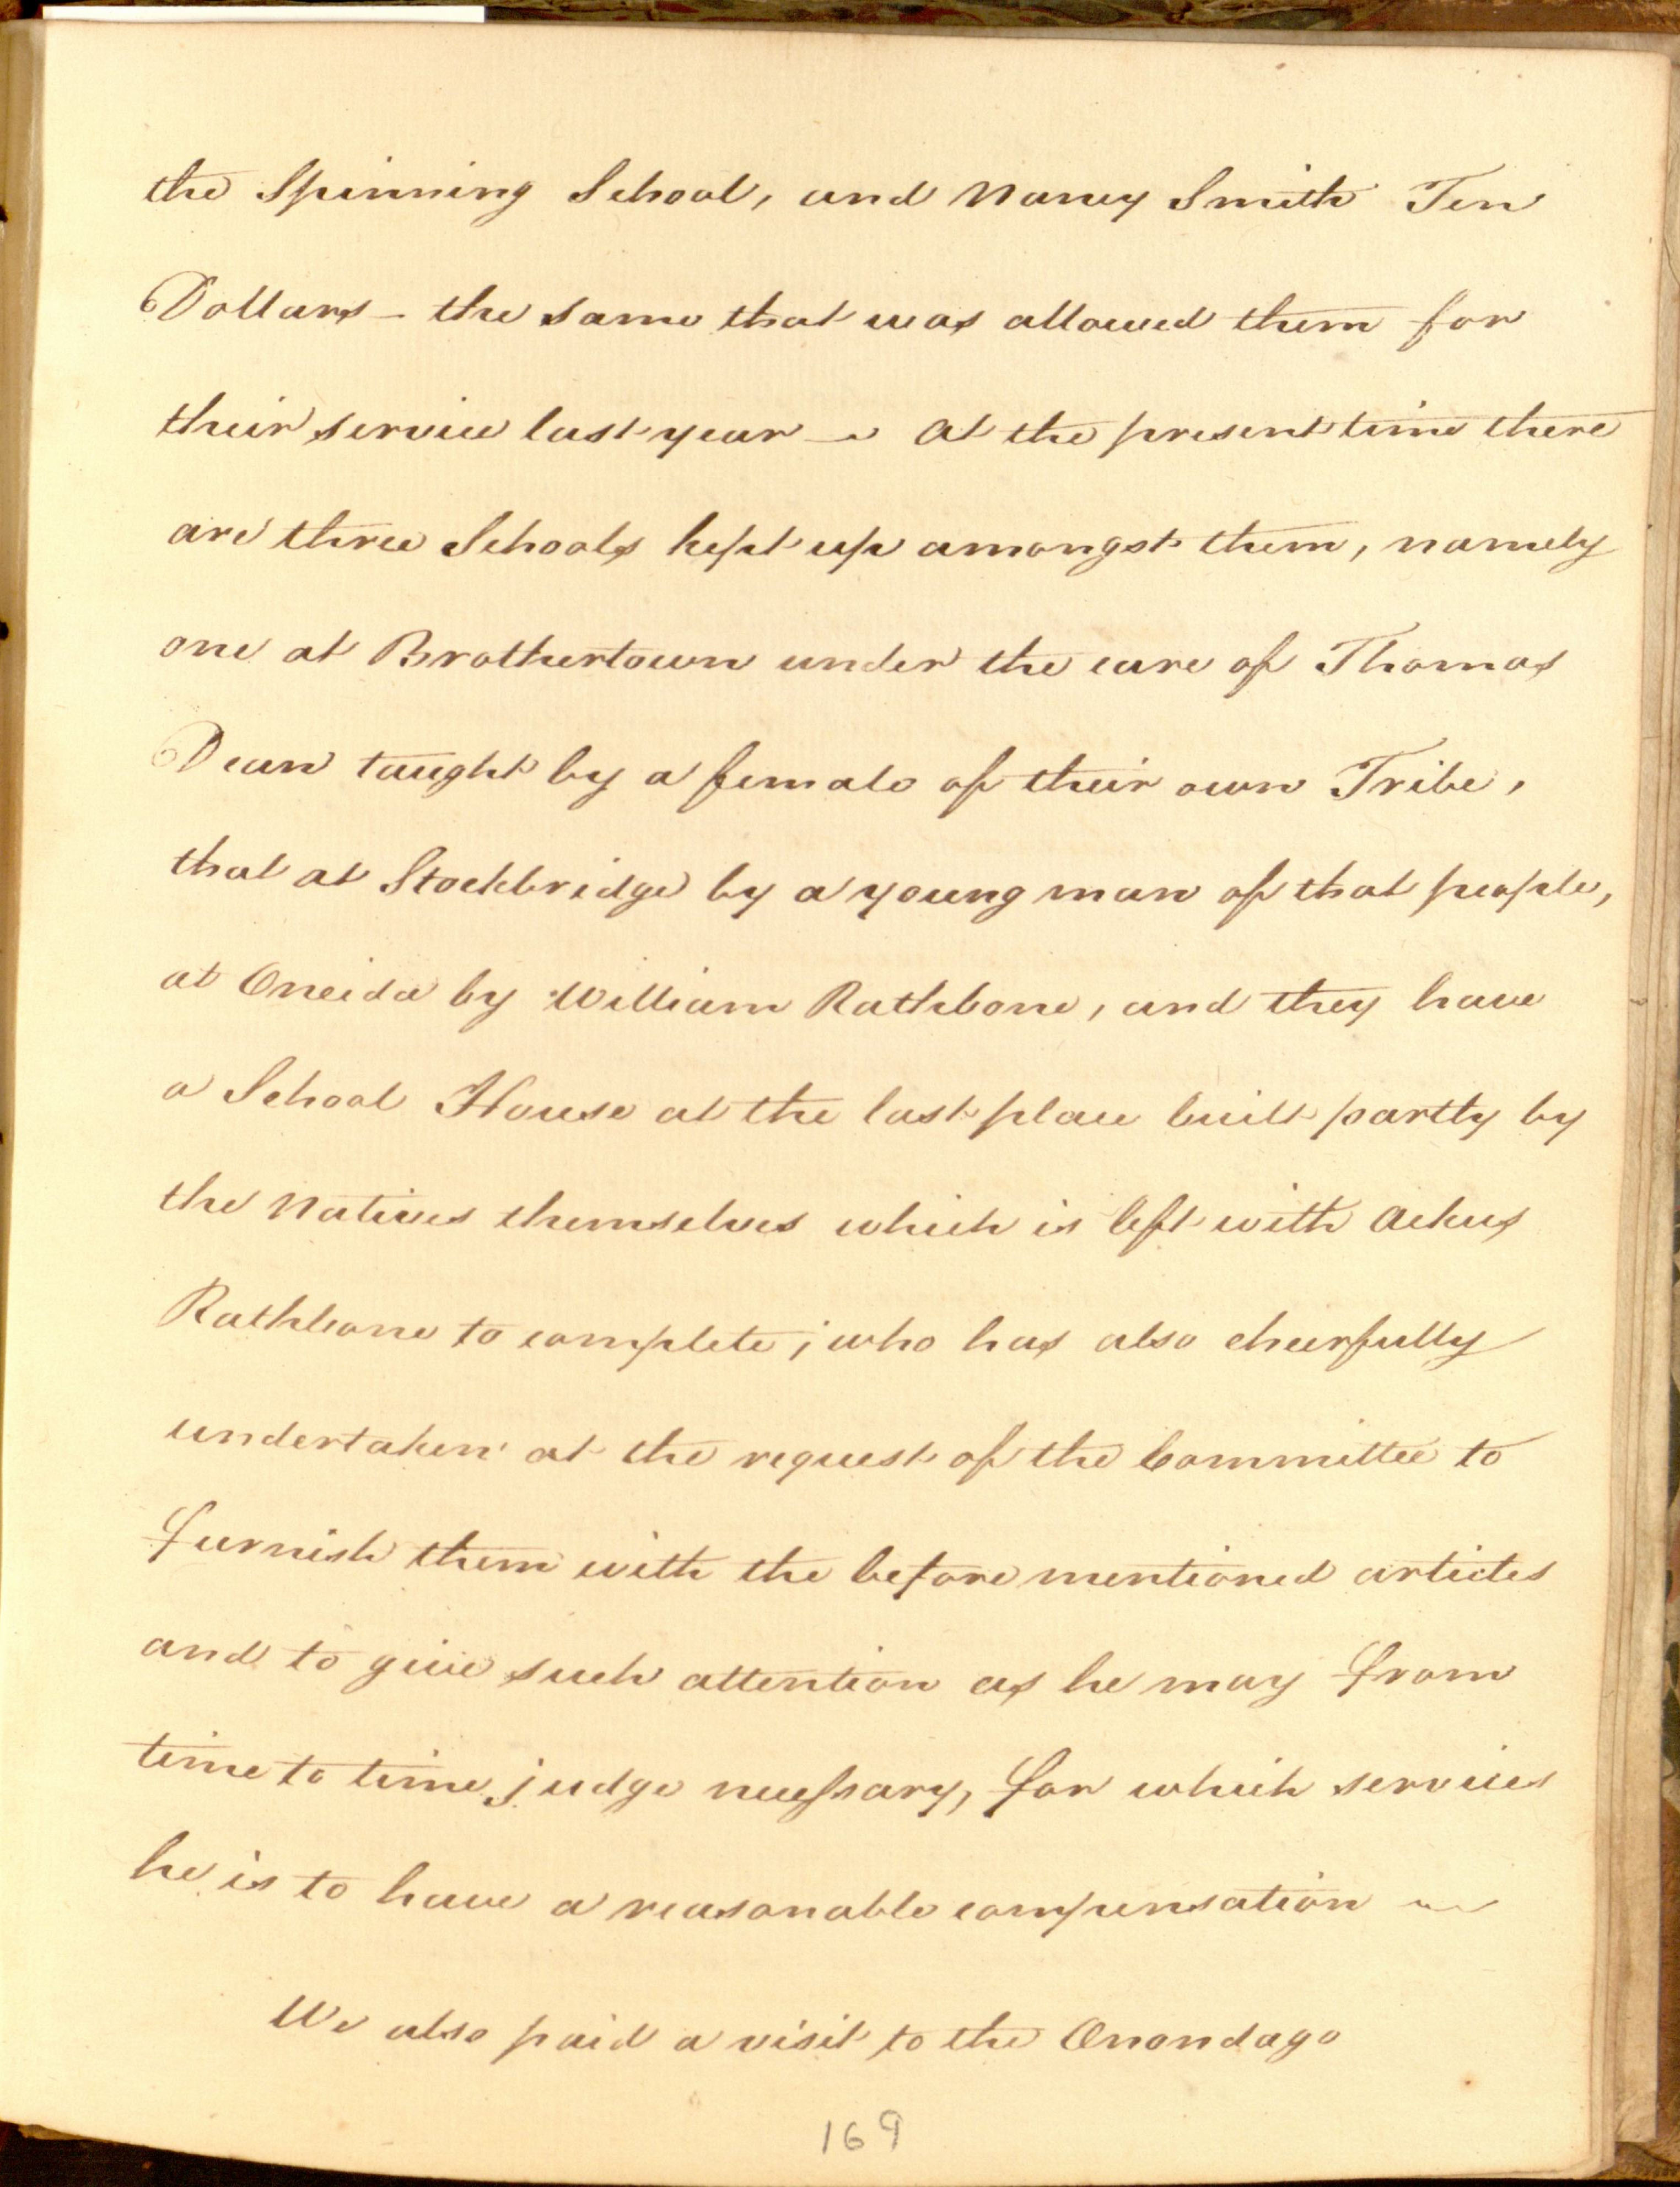 the Spinning School, and Nancy Smith Ten
Dollars – the same that was allowed them for
their service last year – At the present time there
are three Schools kept up amongst them, namely
one at Brothertown under the care of Thomas
Dean taught by a female of their own Tribe,
that at Stockbridge by a young man of that people,
at Oneida by William Rathbone, and they have
a School House at the last place built partly by
the Natives themselves which is left with Ackus
Rathbone to complete; who has also cheerfully
undertaken at the request of the Committee to
furnish them with the before mentioned articles
and to give such attention as he may from
time to time judge necessary, for which services
he is to have a reasonable compensation ~
We also paid a visit to the Onondago
169